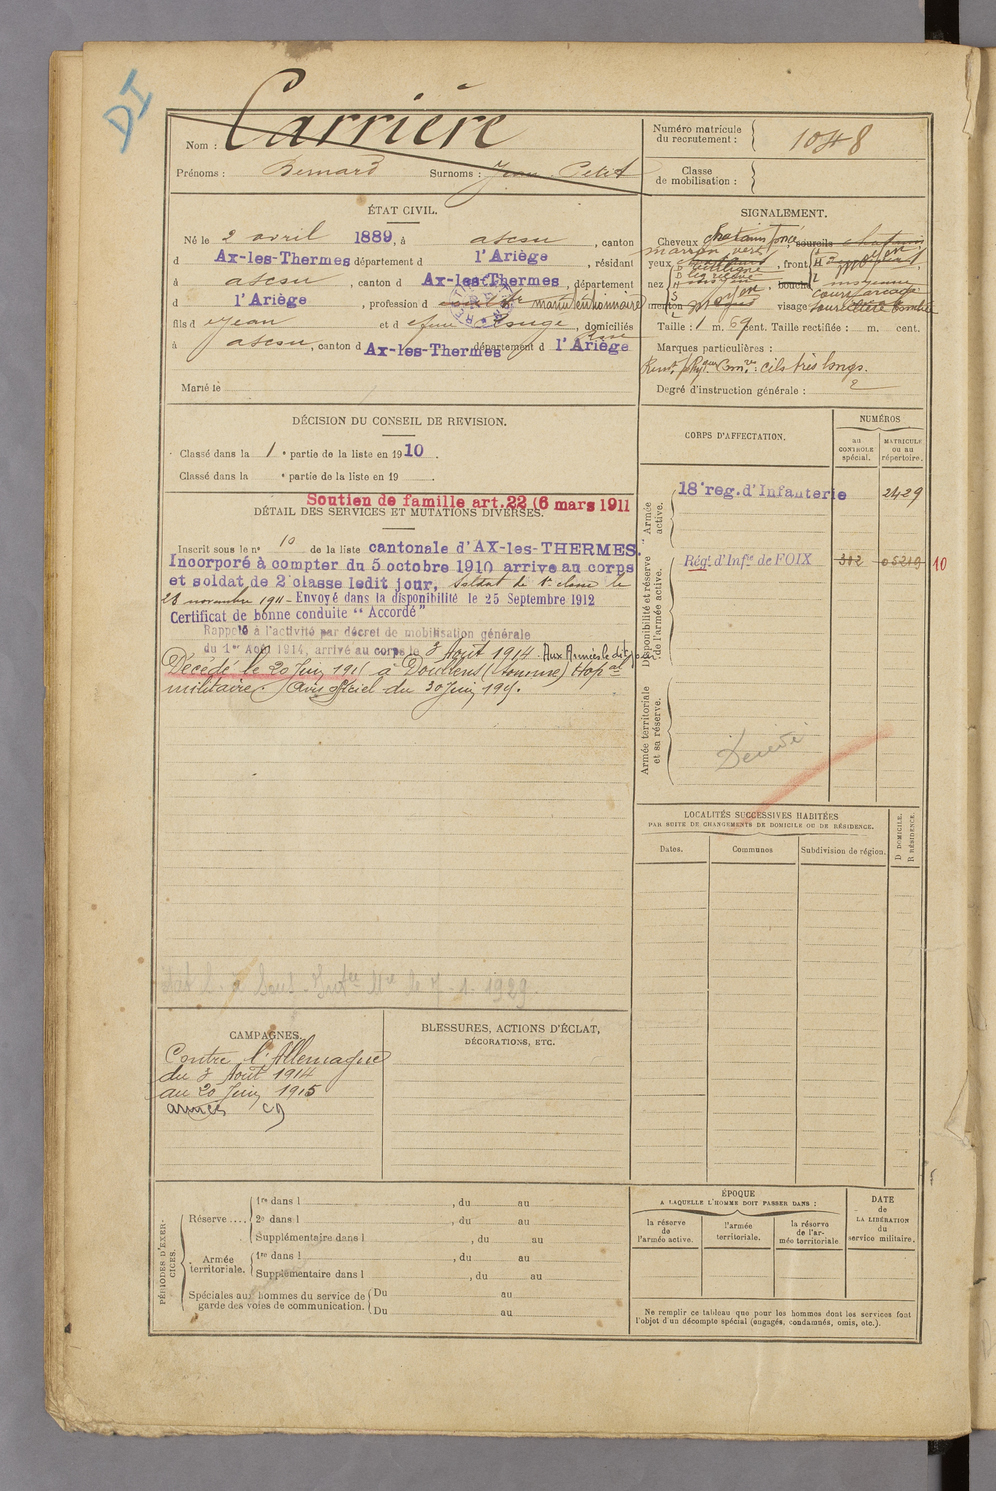 DI
Nom : Carrière
Prénoms : Bernard Surnoms : Jean Petit
Numéro matricule du recrutement : 1048
Classe de mobilisation :
ÉTAT CIVIL.
Né le 2 avril 1889, à ascou, canton
d Ax-les-Thermes département d l'Ariège, résidant
à ascou, canton d Ax-les-Thermes, département
d l'Ariège, profession d
fils d Jean et d feue Rouge, domiciliés
à ascou, canton d Ax-les-Thermes département d l'Ariège
Marié le
SIGNALEMENT.
Cheveux chatains foncé, sourcils chatains
marron vert
yeux, front
nez rectiligne, bouche moyenne
menton, visage
Taille : 1 m. 69 cent. Taille rectifiée : m. cent.
Marques particulières :
cils très longs.
Degré d'instruction générale : 2
DÉCISION DU CONSEIL DE REVISION.
Classé dans la 1e partie de la liste en 1910.
Classé dans la e partie de la liste en 19
Soutien de famille art. 22 (6 mars 1911
DÉTAIL DES SERVICES ET MUTATIONS DIVERSES.
Inscrit sous le n° 10 de la liste cantonale d'AX-les-THERMES.
Incorporé à compter du 5 octobre 1910 arrive au corps
et soldat de 2e classe ledit jour, Soldat de 1e classe le
28 novembre 1911 - Envoyé dans la disponibilité le 25 Septembre 1912
Certificat de bonne conduite "Accordé"
Rappelé à l'activité par décret de mobilisation générale
du 1er Août 1914, arrivé au corps le 3 Août 1914 Aux Armées le dit jour.
Décédé le 20 Juin 1915 à Doullens (Somme) Hopal
militaire. (avis officiel du 30 Juin 1915.
le 7.1.1929.
CORPS D'AFFECTATION.
NUMÉROS
au CONTROLE spécial.
MATRICULE ou au répertoire.
Armée active.
18e reg. d'Infanterie 2429
Disponibilité et réserve de l'armée active.
Régt. d'Infie de FOIX 302 05210 10
Armée territoriale et sa réserve.
LOCALITÉS SUCCESSIVES HABITÉES
PAR SUITE DE CHANGEMENTS DE DOMICILE OU DE RÉSIDENCE.
Dates. Communes Subdivision de région. D DOMICILE. R RÉSIDENCE.
CAMPAGNES.
Contre l'Allemagne
du 3 Août 1914
au 20 Juin 1915
armées
BLESSURES, ACTIONS D'ÉCLAT,
DÉCORATIONS, ETC.
PÉRIODES D'EXERCICES.
Réserve .... 1re dans l , du au
2e dans l , du au
Supplémentaire dans l , du au
Armée territoriale. 1re dans l , du au
Supplémentaire dans l , du au
Spéciales aux hommes du service de garde des voies de communication. Du au
Du au
ÉPOQUE
A LAQUELLE L'HOMME DOIT PASSER DANS :
la réserve de l'armée active.
l'armée territoriale.
la réserve de l'armée territoriale
DATE de LA LIBÉRATION du service militaire.
Ne remplir ce tableau que pour les hommes dont les services font
l'objet d'un décompte spécial (engagés, condamnés, omis, etc.).